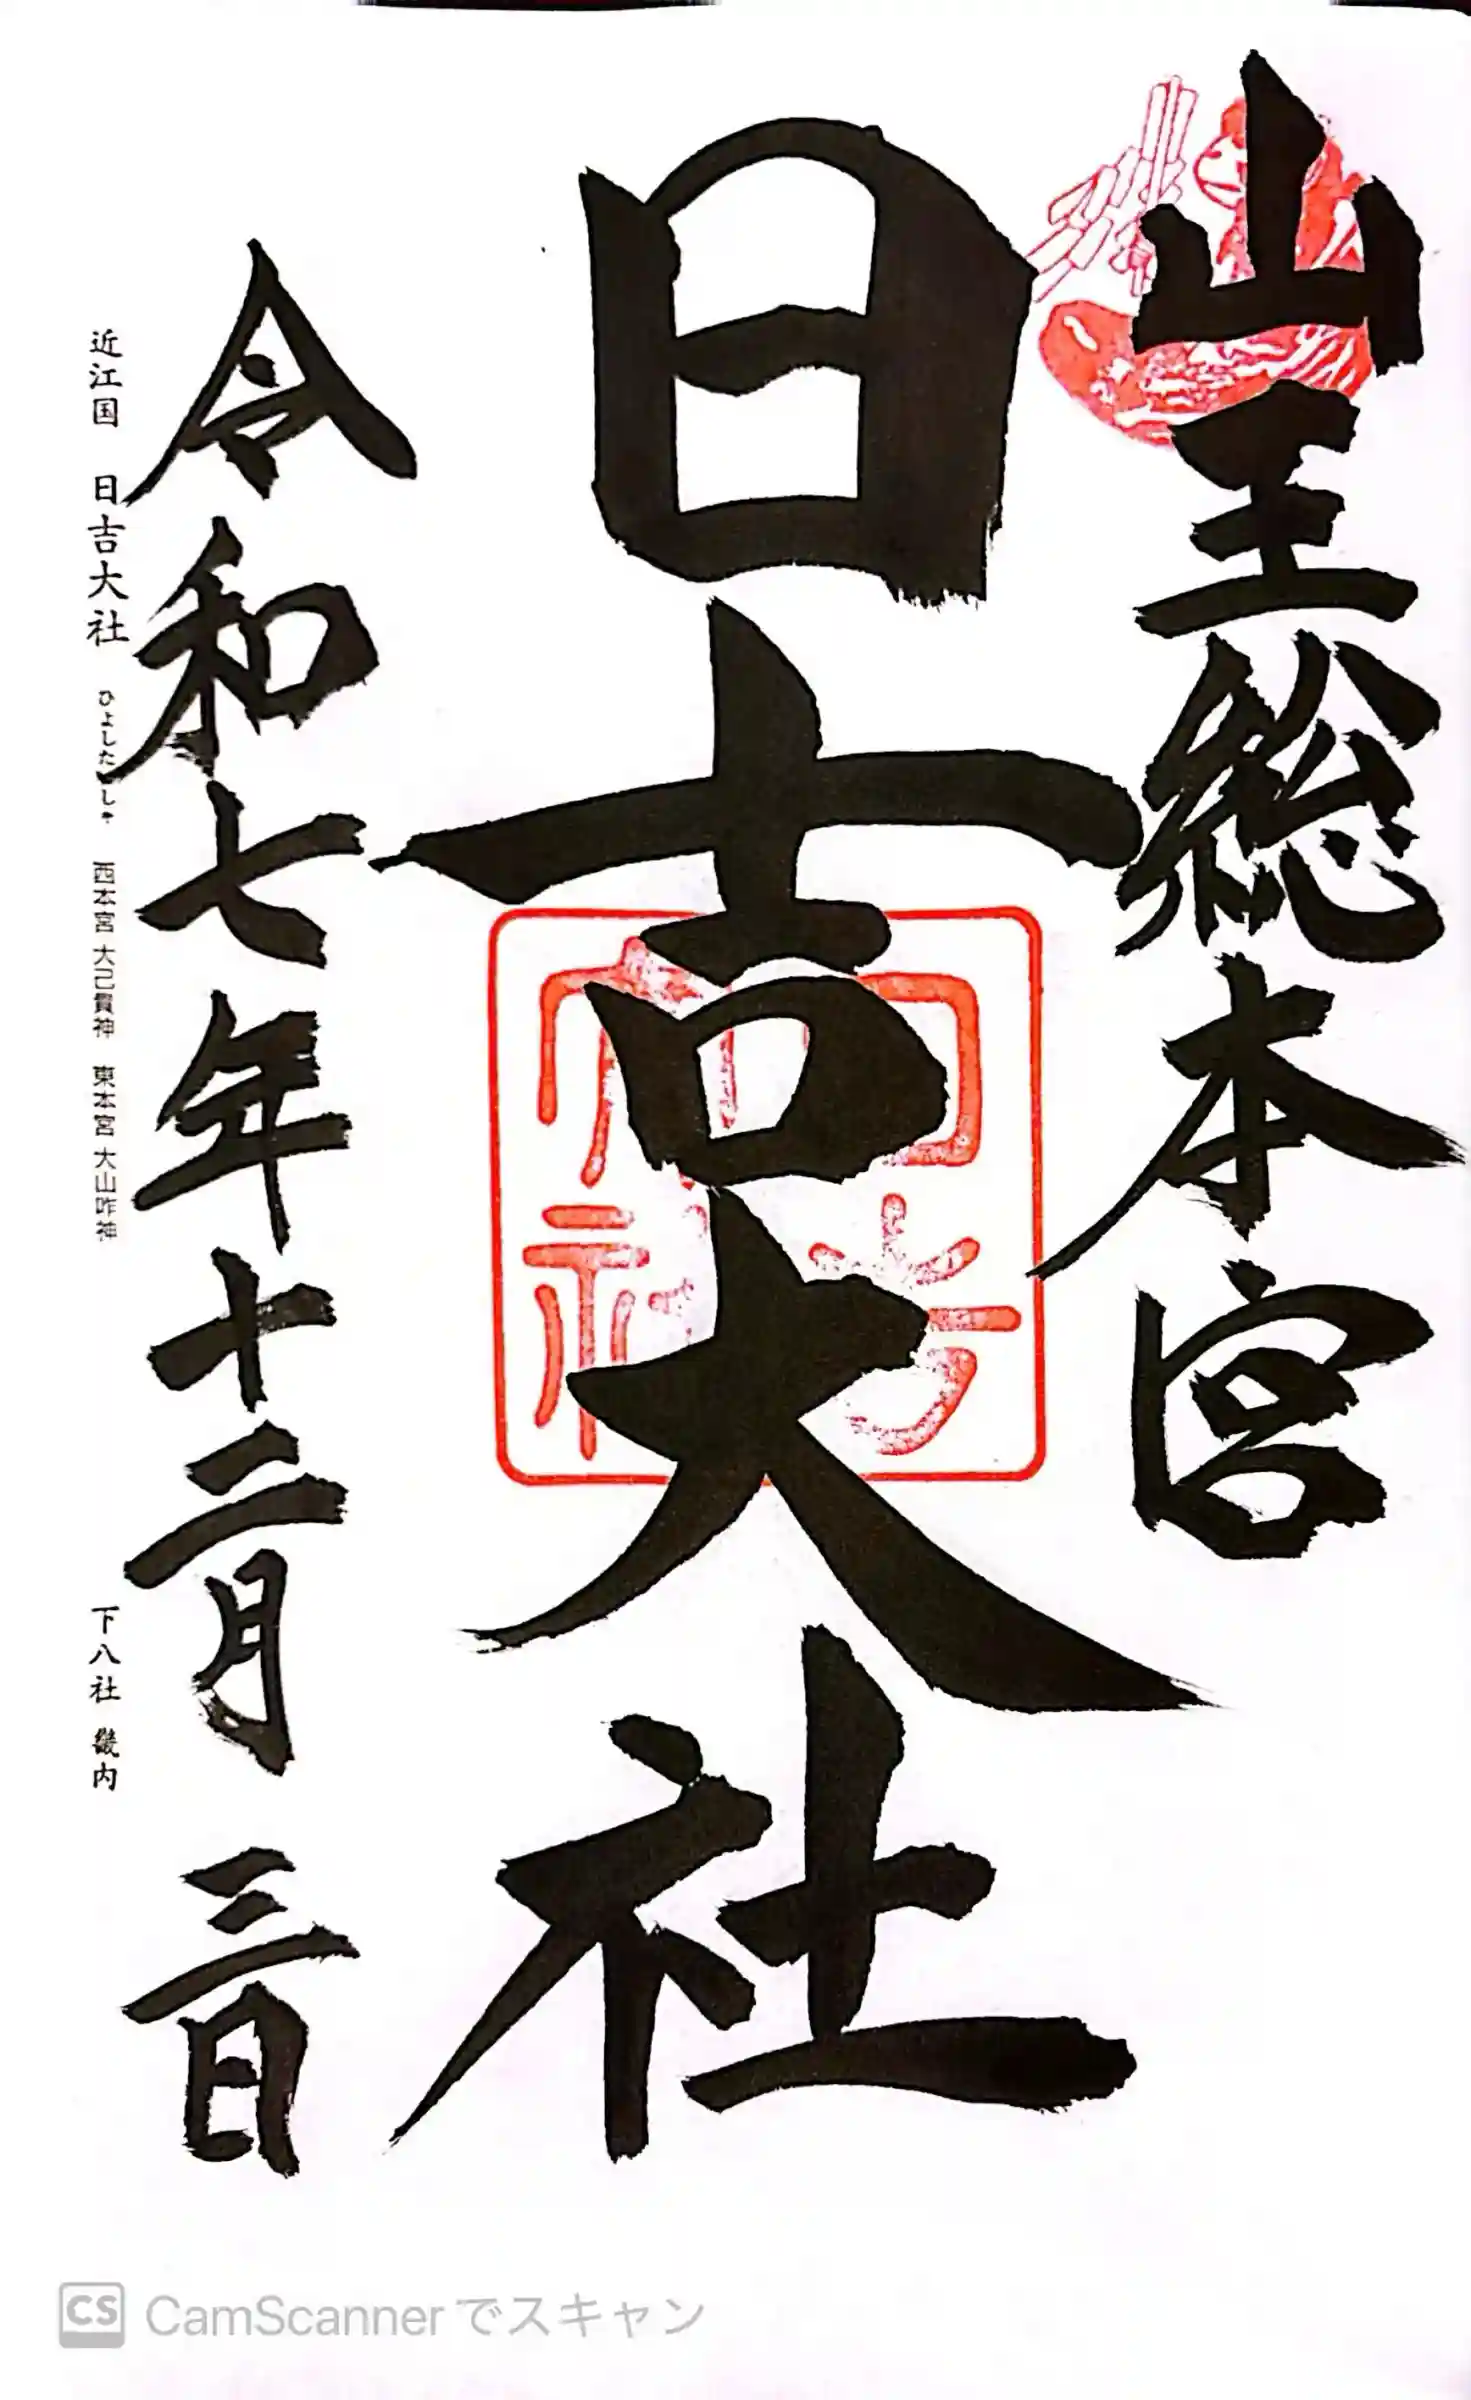 山王総本宮
日吉大社
令和七年十二月三日
近江国 日吉大社 ひよしたいしゃ 西本宮 大己貴神 東本宮 大山咋神 下八社 畿内
CS CamScannerでスキャン